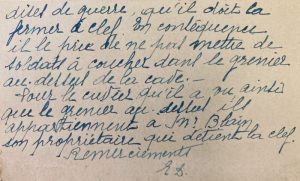 dites de guerre, qu'il doit la
fermer à clef. En conséquence
il le prie de ne pas mettre de
soldats à coucher dans le grenier
au-dessus de la cave. —
Pour le cuvier qu'il a vu ainsi
que le grenier au-dessus ils
appartiennent à Mr Blain
son propriétaire qui détient la clef.
Remerciements